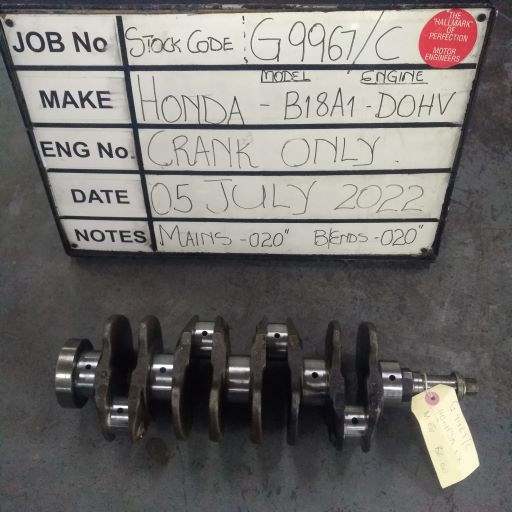 JOB No STOCK CODE : G9967/C
THE "HALLMARK" OF PERFECTION MOTOR ENGINEERS
MODEL ENGINE
MAKE HONDA - B18A1 - DOHV
ENG No. CRANK ONLY.
DATE 05 JULY 2022
NOTES MAINS -020" B/ENDS -020"